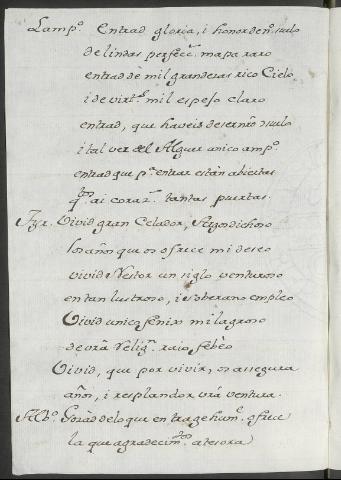 Lamp.º Entrad gloria, i honor de nr̄o. suelo
de lindas perfecc.s mapa raro
entrad de mil grandezas rico Cielo
i de virt.s mil espejo claro
entrad, que haveis de ser nr̄o
i tal vez del Alguer unico amp.º
entrad que p.ª entrar están abiertas
q. ai coraz.nes tantas puertas.
Tyr. Vivid gran Celador, Pastor dichoso
los años que os ofrece mi deseo
vivid Nestor un siglo venturoso
en tan lustroso, i soberano empleo
Vivid unico fenix milagroso
de vr̄a Relig.n raio febèo
Vivid, que por vivir, os assegura
años, i resplandor vr̄a ventura.
Alb.º Gozad de lo que en trage hum.e ofrece
la que agradecim.tos atesora